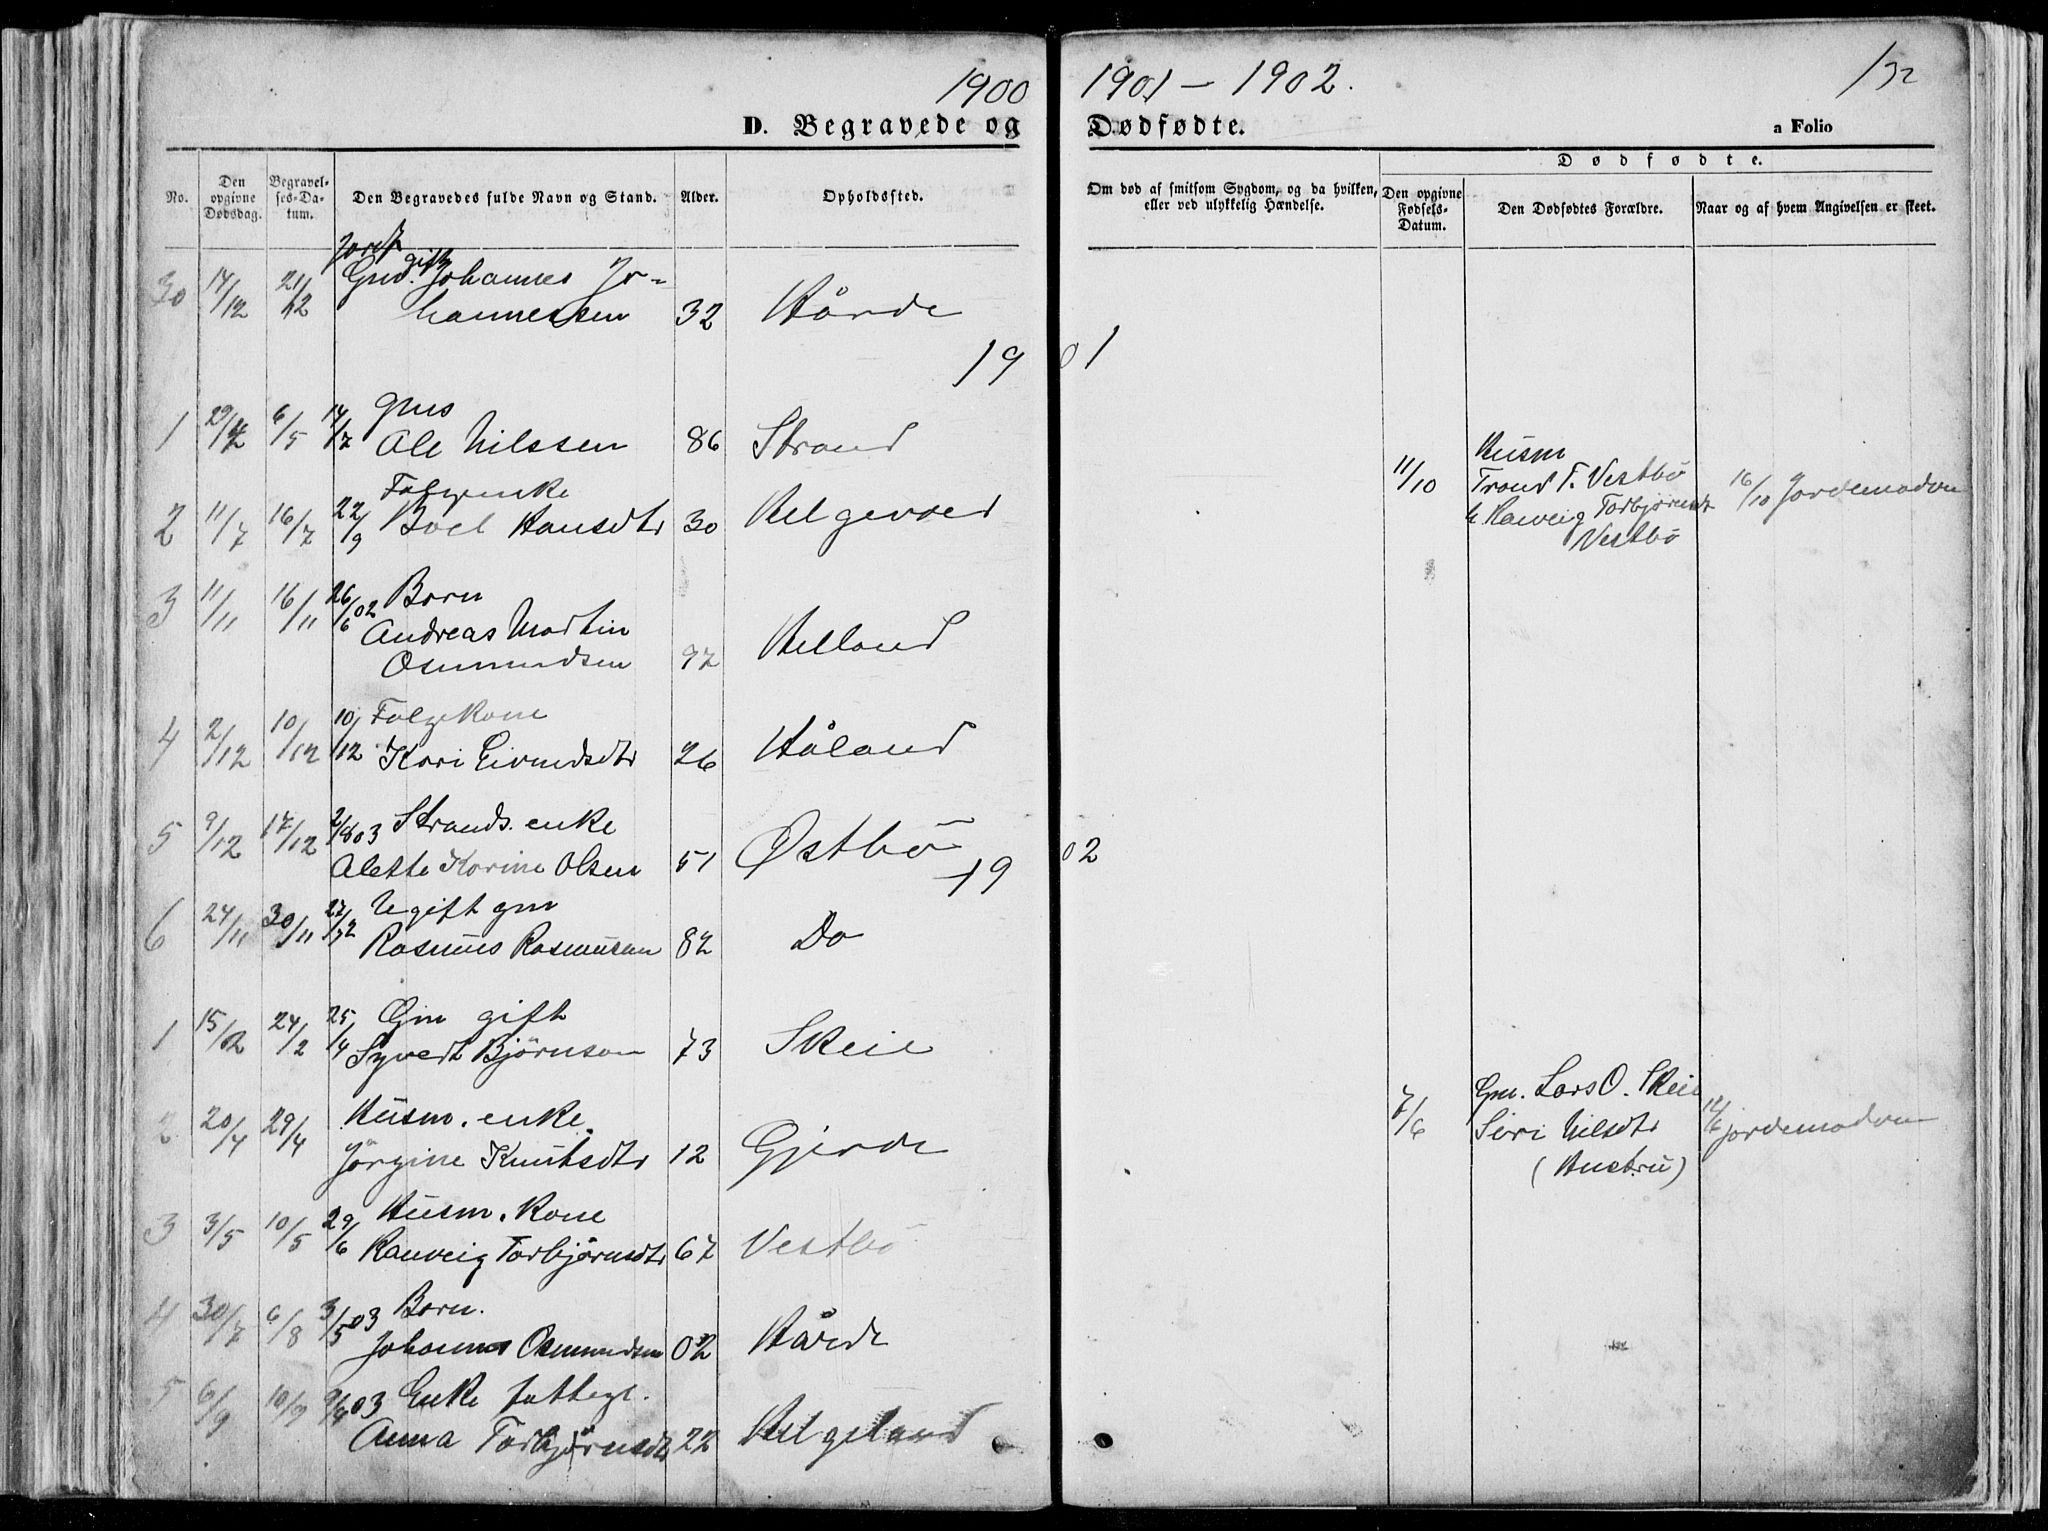 1900
1901 – 1902.
132
D. Begravede og
Dødfødte.
a Folio
No.
Den opgivne Dødsdag.
Begravelses-Datum.
Den Begravedes fulde Navn og Stand.
Alder.
Opholdssted.
Om død af smitsom Sygdom, og da hvilken, eller ved ulykkelig Hændelse.
Dødfødte.
Den opgivne Fødsels-Datum.
Den Dødfødtes Forældre.
Naar og af hvem Angivelsen er skeet.
gift
30 17/12 21/12 Johannes Johannessen 32 Hårde
1901
1 6/5 14/7
Ole Nilssen 86 Strand
11/10 Husm
Trond T. Vestbö
& Ranveig Torbjörnsdt
Vestbö
16/10 Jordemoderen
2 11/7 16/7 22/9 Folgeenke
Boel Hansdtr 30
3 11/11 16/11 26/6 02 Barn
Andreas Martin
Osmundsen 97 Helland
4 2/12 10/12 10/12 Folgekone
Kari Eivindsdtr 26 Håland
5 9/12 17/12 2/8 03 Strands. enke
Alette Karine Olsen 51 Østbö
1902
6 24/11 30/11 Ugift gm
Rasmus Rasmussen 82 Do
1 15/2 24/2 25/4 Gm gift
Syvert Björnson 73 Skeie
2 20/4 29/4 Husm. enke.
Jörgine Knutsdtr 12 Gjerde
7/6 Gm. Lars O. Skeie
Siri Nilsdtr
(Hustru)
12/6 jordemoderen
3 3/5 10/5 29/6 Husm. Kone
Ranveig Torbjörnsdtr 67 Vestbö
4 30/7 6/8 3/5 03 Barn.
Johannes Osmundsen 02 Hårde
5 6/9 10/9 9/4 03 Enke fattigl.
Anna Torbjörnsdtr 22 Helgeland